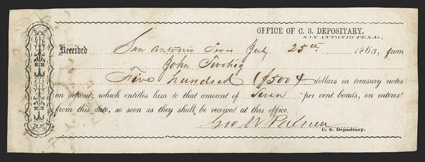 OFFICE OF C. S. DEPOSITARY,
SAN ANTONIO TEXAS,
Received San Antonio Texas July 25th 1863, from
John
Five hundred ($500) dollars in treasury notes
on deposit, which entitles him to that amount of per cent bonds, on interest
from this date, so soon as they shall be received at this office.
Geo W Palmer
C. S. Depositary.